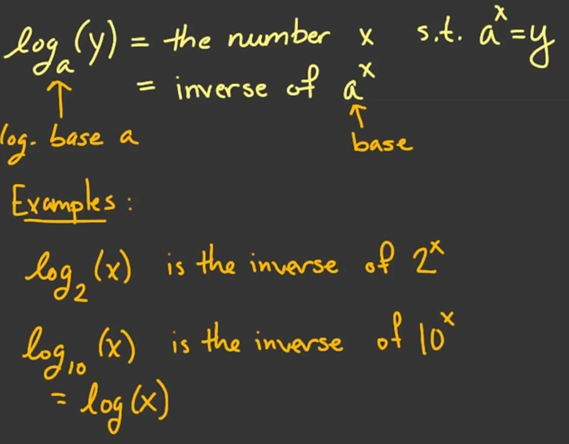 logₐ(y) = the number x s.t. aˣ=y
= inverse of aˣ
log. base a
base
Examples:
log₂(x) is the inverse of 2ˣ
log₁₀(x) is the inverse of 10ˣ
= log(x)